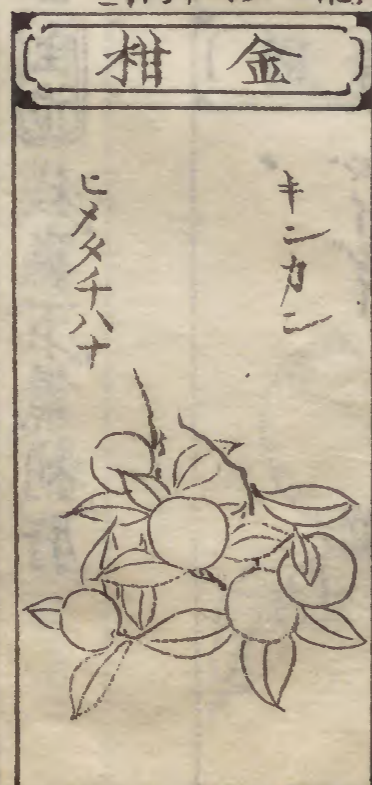 金柑
キンカン
ヒメタチハナ